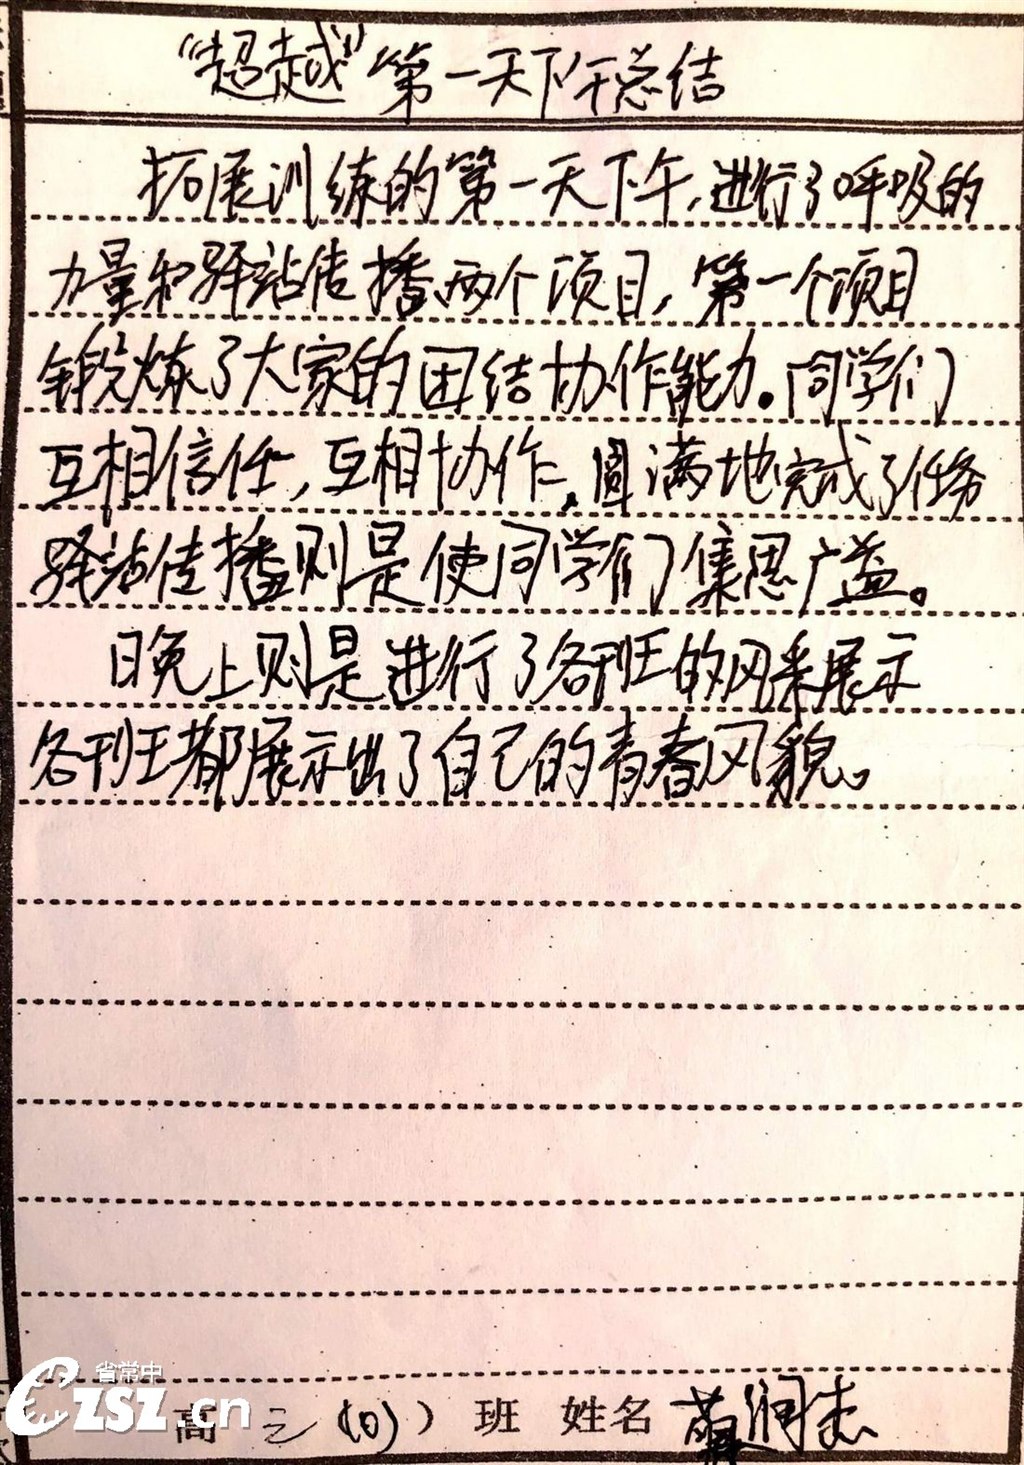 “超越”第一天下午总结
拓展训练的第一天下午,进行了呼吸的
力量和驿站传播两个项目,第一个项目
锻炼了大家的团结协作能力。同学们
互相信任,互相协作,圆满地完成了任务
驿站传播则是使同学们集思广益。
晚上则是进行了各班的风采展示
各班都展示出了自己的青春风貌。
高二(10)）班 姓名 润杰
省常中
CZSZ.cn